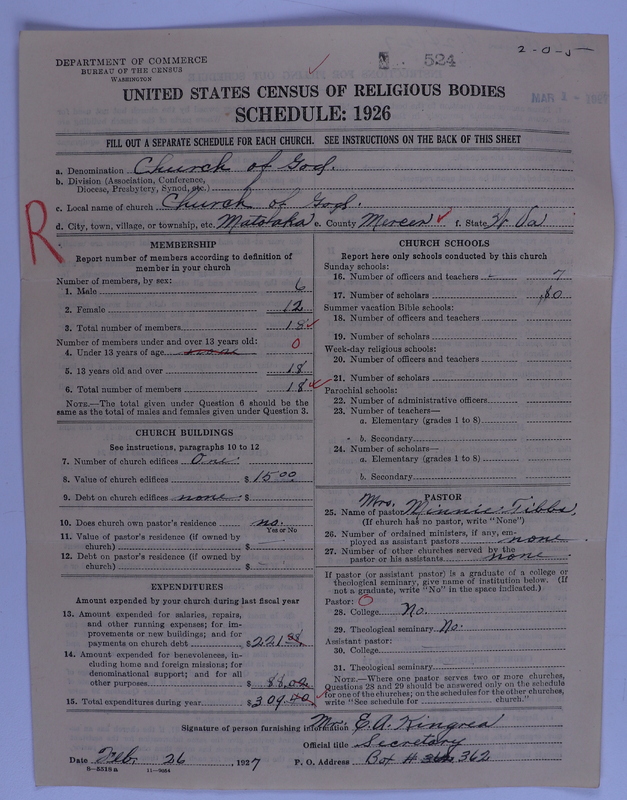 DEPARTMENT OF COMMERCE
BUREAU OF THE CENSUS
WASHINGTON
524
2-0-5
MAR
UNITED STATES CENSUS OF RELIGIOUS BODIES
SCHEDULE: 1926
FILL OUT A SEPARATE SCHEDULE FOR EACH CHURCH. SEE INSTRUCTIONS ON THE BACK OF THIS SHEET
a. Denomination Church of God.
b. Division (Association, Conference,
Diocese, Presbytery, Synod, etc.)
c. Local name of church Church of God.
d. City, town, village, or township, etc. Matoaka e. County Mercer f. State W Va
R
MEMBERSHIP
Report number of members according to definition of
member in your church
Number of members, by sex:
1. Male 6
2. Female 12
3. Total number of members 18
Number of members under and over 13 years old:
4. Under 13 years of age 0
5. 13 years old and over 18
6. Total number of members 18
NOTE.—The total given under Question 6 should be the
same as the total of males and females given under Question 3.
CHURCH BUILDINGS
See instructions, paragraphs 10 to 12
7. Number of church edifices One
8. Value of church edifices $ 1500
9. Debt on church edifices none $
10. Does church own pastor's residence no.
Yes or No
11. Value of pastor's residence (if owned by
church) $
12. Debt on pastor's residence (if owned by
church) $
EXPENDITURES
Amount expended by your church during last fiscal year
13. Amount expended for salaries, repairs,
and other running expenses; for im-
provements or new buildings; and for
payments on church debt $ 221
14. Amount expended for benevolences, in-
cluding home and foreign missions; for
denominational support; and for all
other purposes $ 88.02
15. Total expenditures during year $ 309
CHURCH SCHOOLS
Report here only schools conducted by this church
Sunday schools:
16. Number of officers and teachers 7
17. Number of scholars
Summer vacation Bible schools:
18. Number of officers and teachers
19. Number of scholars
Week-day religious schools:
20. Number of officers and teachers
21. Number of scholars
Parochial schools:
22. Number of administrative officers
23. Number of teachers—
a. Elementary (grades 1 to 8)
b. Secondary
24. Number of scholars—
a. Elementary (grades 1 to 8)
b. Secondary
PASTOR
25. Name of pastor Mrs. Minnie Tibbs
(If church has no pastor, write "None")
26. Number of ordained ministers, if any, em-
ployed as assistant pastors none
27. Number of other churches served by the
pastor or his assistants none
If pastor (or assistant pastor) is a graduate of a college or
theological seminary, give name of institution below. (If
not a graduate, write "No" in the space indicated.)
Pastor: O
28. College No.
29. Theological seminary No.
Assistant pastor:
30. College
31. Theological seminary
NOTE.—Where one pastor serves two or more churches,
Questions 28 and 29 should be answered only on the schedule
for one of the churches; on the schedules for the other churches,
write "See schedule for church."
Signature of person furnishing information Mr. E. A. Kingrea
Official title Secretary
Date Febr 26, 1927 P. O. Address Box # 362
8-5518a 11-9054